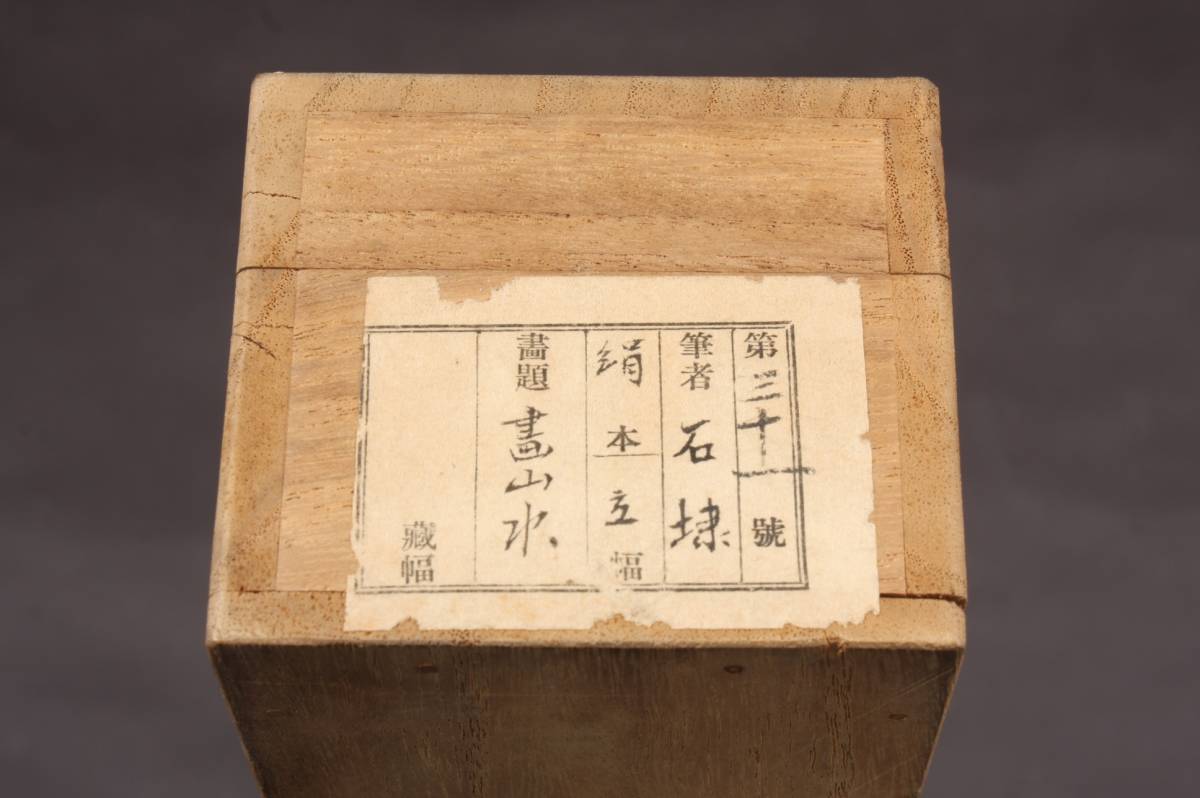 第三十一號
筆者 石埭
絹本立幅
畵題 畫山水
藏幅